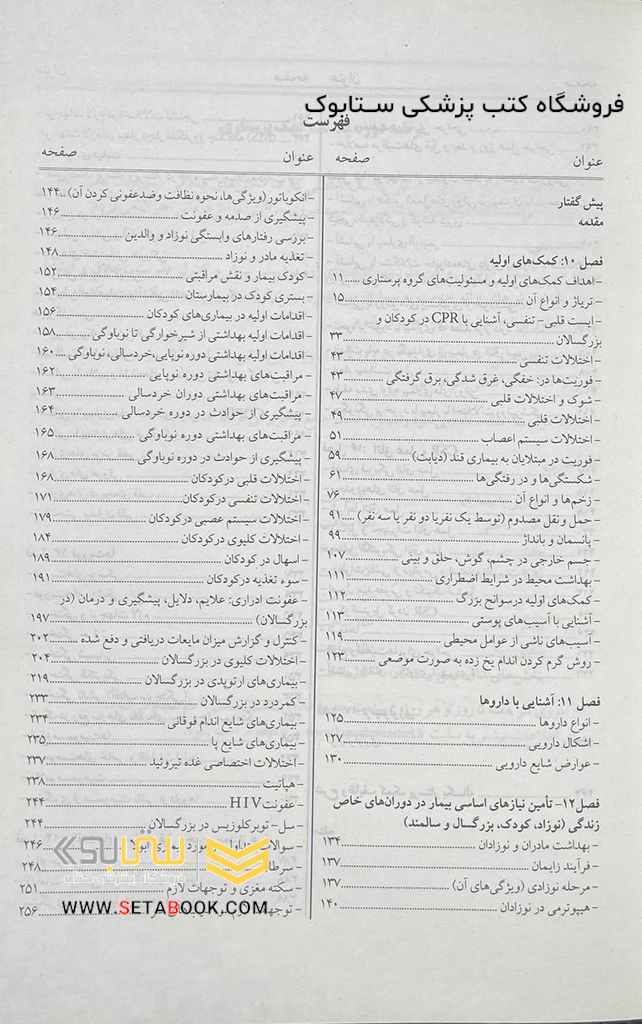 فروشگاه کتب پزشکی ستابوک
فهرست
عنوان صفحه
پیش گفتار
مقدمه
فصل ۱۰: کمک‌های اولیه
- اهداف کمک‌های اولیه و مسئولیت‌های گروه پرستاری ...... ۱۱
- تریاژ و انواع آن ...... ۱۵
- ایست قلبی- تنفسی، آشنایی با CPR در کودکان و
بزرگسالان ...... ۳۳
- اختلالات تنفسی ...... ۴۳
- فوریت‌ها در: خفگی، غرق شدگی، برق گرفتگی ...... ۴۳
- شوک و اختلالات قلبی ...... ۴۷
- اختلالات قلبی ...... ۴۹
- اختلالات سیستم اعصاب ...... ۵۱
- فوریت در مبتلایان به بیماری قند (دیابت) ...... ۵۹
- شکستگی‌ها و در رفتگی‌ها ...... ۶۱
- زخم‌ها و انواع آن ...... ۷۶
- حمل و نقل مصدوم (توسط یک نفر یا دو نفر یا سه نفر) ...... ۹۱
- پانسمان و بانداژ ...... ۹۹
- جسم خارجی در چشم، گوش، حلق و بینی ...... ۱۰۷
- بهداشت محیط در شرایط اضطراری ...... ۱۱۱
- کمک‌های اولیه درسوانح بزرگ ...... ۱۱۲
- آشنایی با آسیب‌های پوستی ...... ۱۱۳
- آسیب‌های ناشی از عوامل محیطی ...... ۱۱۹
- روش گرم کردن اندام یخ زده به صورت موضعی ...... ۱۲۳
فصل ۱۱: آشنایی با داروها
- انواع داروها ...... ۱۲۵
- اشکال دارویی ...... ۱۲۷
- عوارض شایع دارویی ...... ۱۳۰
فصل۱۲- تأمین نیازهای اساسی بیمار در دوران‌های خاص
زندگی (نوزاد، کودک، بزرگسال و سالمند)
- بهداشت مادران و نوزادان ...... ۱۳۴
- فرآیند زایمان ...... ۱۳۷
- مرحله نوزادی (ویژگی‌های آن) ...... ۱۳۷
- هیپوترمی در نوزادان ...... ۱۴۰
عنوان صفحه
- انکوباتور (ویژگی‌ها، نحوه نظافت و ضدعفونی کردن آن) .. ۱۴۴
- پیشگیری از صدمه و عفونت ...... ۱۴۶
- بررسی رفتارهای وابستگی نوزاد و والدین ...... ۱۴۶
- تغذیه مادر و نوزاد ...... ۱۴۸
- کودک بیمار و نقش مراقبتی ...... ۱۵۲
- بستری کودک در بیمارستان ...... ۱۵۴
- اقدامات اولیه در بیماری‌های کودکان ...... ۱۵۶
- اقدامات اولیه بهداشتی از شیرخوارگی تا نوباوگی ...... ۱۵۸
- اقدامات اولیه بهداشتی دوره نوپایی،خردسالی، نوباوگی .... ۱۶۰
- مراقبت‌های بهداشتی دوره نوپایی ...... ۱۶۲
- مراقبت‌های بهداشتی دوران خردسالی ...... ۱۶۳
- پیشگیری از حوادث در دوره خردسالی ...... ۱۶۴
- مراقبت‌های بهداشتی دوره نوباوگی ...... ۱۶۵
- پیشگیری از حوادث در دوره نوباوگی ...... ۱۶۸
- اختلالات قلبی درکودکان ...... ۱۶۸
- اختلالات تنفسی درکودکان ...... ۱۷۱
- اختلالات سیستم عصبی درکودکان ...... ۱۷۹
- اختلالات کلیوی درکودکان ...... ۱۸۴
- اسهال در کودکان ...... ۱۸۹
- سوء تغذیه درکودکان ...... ۱۹۱
- عفونت ادراری: علایم، دلایل، پیشگیری و درمان (در
بزرگسالان) ...... ۱۹۷
- کنترل و گزارش میزان مایعات دریافتی و دفع شده ...... ۲۰۲
- اختلالات کلیوی در بزرگسالان ...... ۲۰۴
- بیماری‌های ارتوپدی در بزرگسالان ...... ۲۱۹
- کمردرد در بزرگسالان ...... ۲۳۳
- بیماری‌های شایع اندام فوقانی ...... ۲۳۴
- بیماری‌های شایع پا ...... ۲۳۵
- اختلالات اختصاصی غده تیروئید ...... ۲۳۷
- هپاتیت ...... ۲۳۸
- عفونت HIV ...... ۲۴۴
- سل- توبرکلوزیس در بزرگسالان ...... ۲۴۴
- سوالات متداول در مورد بیماری ابولا ...... ۲۴۶
- سرطان ...... ۲۴۸
- سکته مغزی و توجهات لازم ...... ۲۵۱
- توجهات ...... ۲۵۶
ستابوک
فروشگاه اینترنتی کتاب
WWW.SETABOOK.COM